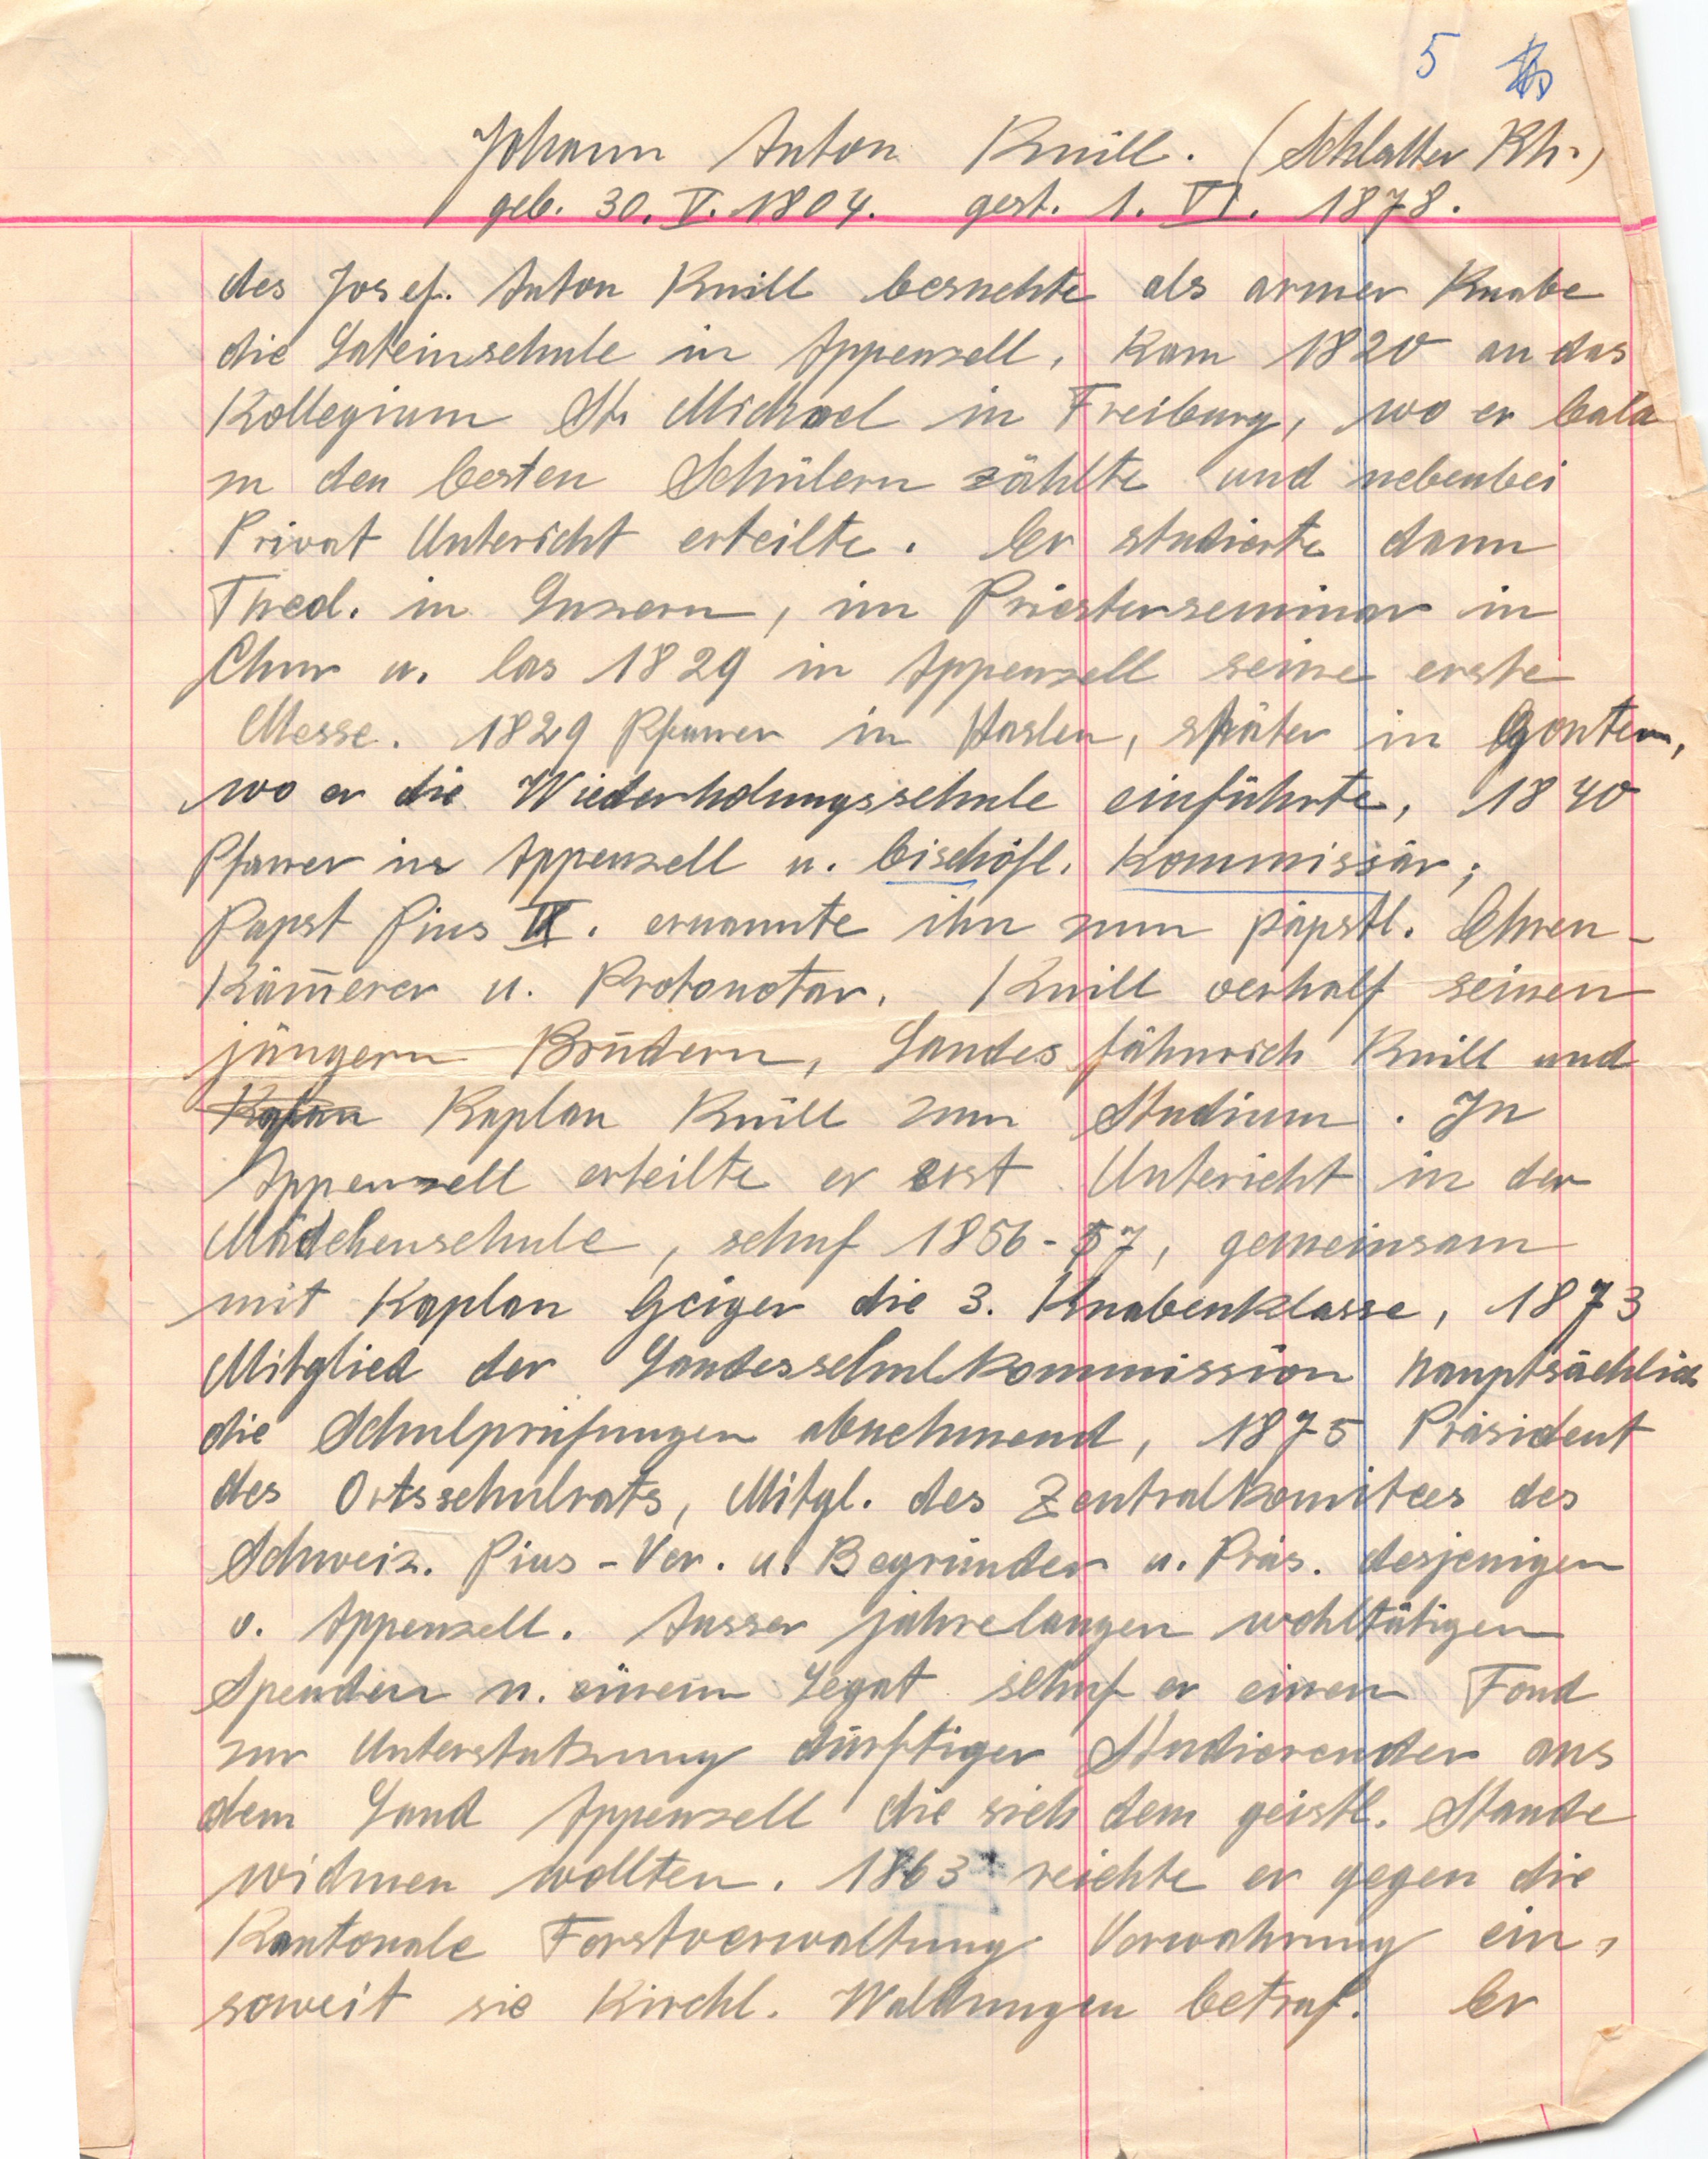 5
Johann Anton Knill. (Schlatter Rh.)
geb. 30. V. 1804. gest. 1. VI. 1878.
des Josef. Anton Knill besuchte als armer Knabe
die Lateinschule in Appenzell, kam 1820 an das
Kollegium St. Michael in Freiburg, wo er bald
zu den besten Schülern zählte und nebenbei
Privat Untericht erteilte. Er studierte dann
Theol. in Luzern, im Priesterseminar in
Chur u. las 1829 in Appenzell seine erste
Messe. 1829 Pfarrer in Haslen, später in Gonten,
wo er die Wiederholungsschule einführte, 1840
Pfarrer in Appenzell u. bischöfl. Kommissär;
Papst Pius IX. ernannte ihn zum päpstl. Ehren-
Käm̅erer u. Protonotar. Knill verhalf seinen
jüngern Brüdern, Landesfähnrich Knill und
Kaplan Kaplan Knill zum Studium. In
Appenzell erteilte er erst Untericht in der
Mädchenschule, schuf 1856-57, gemeinsam
mit Kaplan Geiger die 3. Knabenklasse, 1873
Mitglied der Landesschulkommission hauptsächlich
die Schulprüfungen abnehmend, 1875 Präsident
des Ortsschulrats, Mitgl. des Zentralkomitees des
Schweiz. Pius-Ver. u. Begründer u. Präs. desjenigen
v. Appenzell. Ausser jahrelangen wohltätigen
Spenden u. einem Legat schuf er einen Fond
zur Unterstutzung dürftiger Studierender aus
dem Land Appenzell die sich dem geistl. Stande
widmen wollten. 1863 reichte er gegen die
Kantonale Forstverwaltung Verwahrung ein,
soweit sie Kirchl. Waldungen betraf. Er